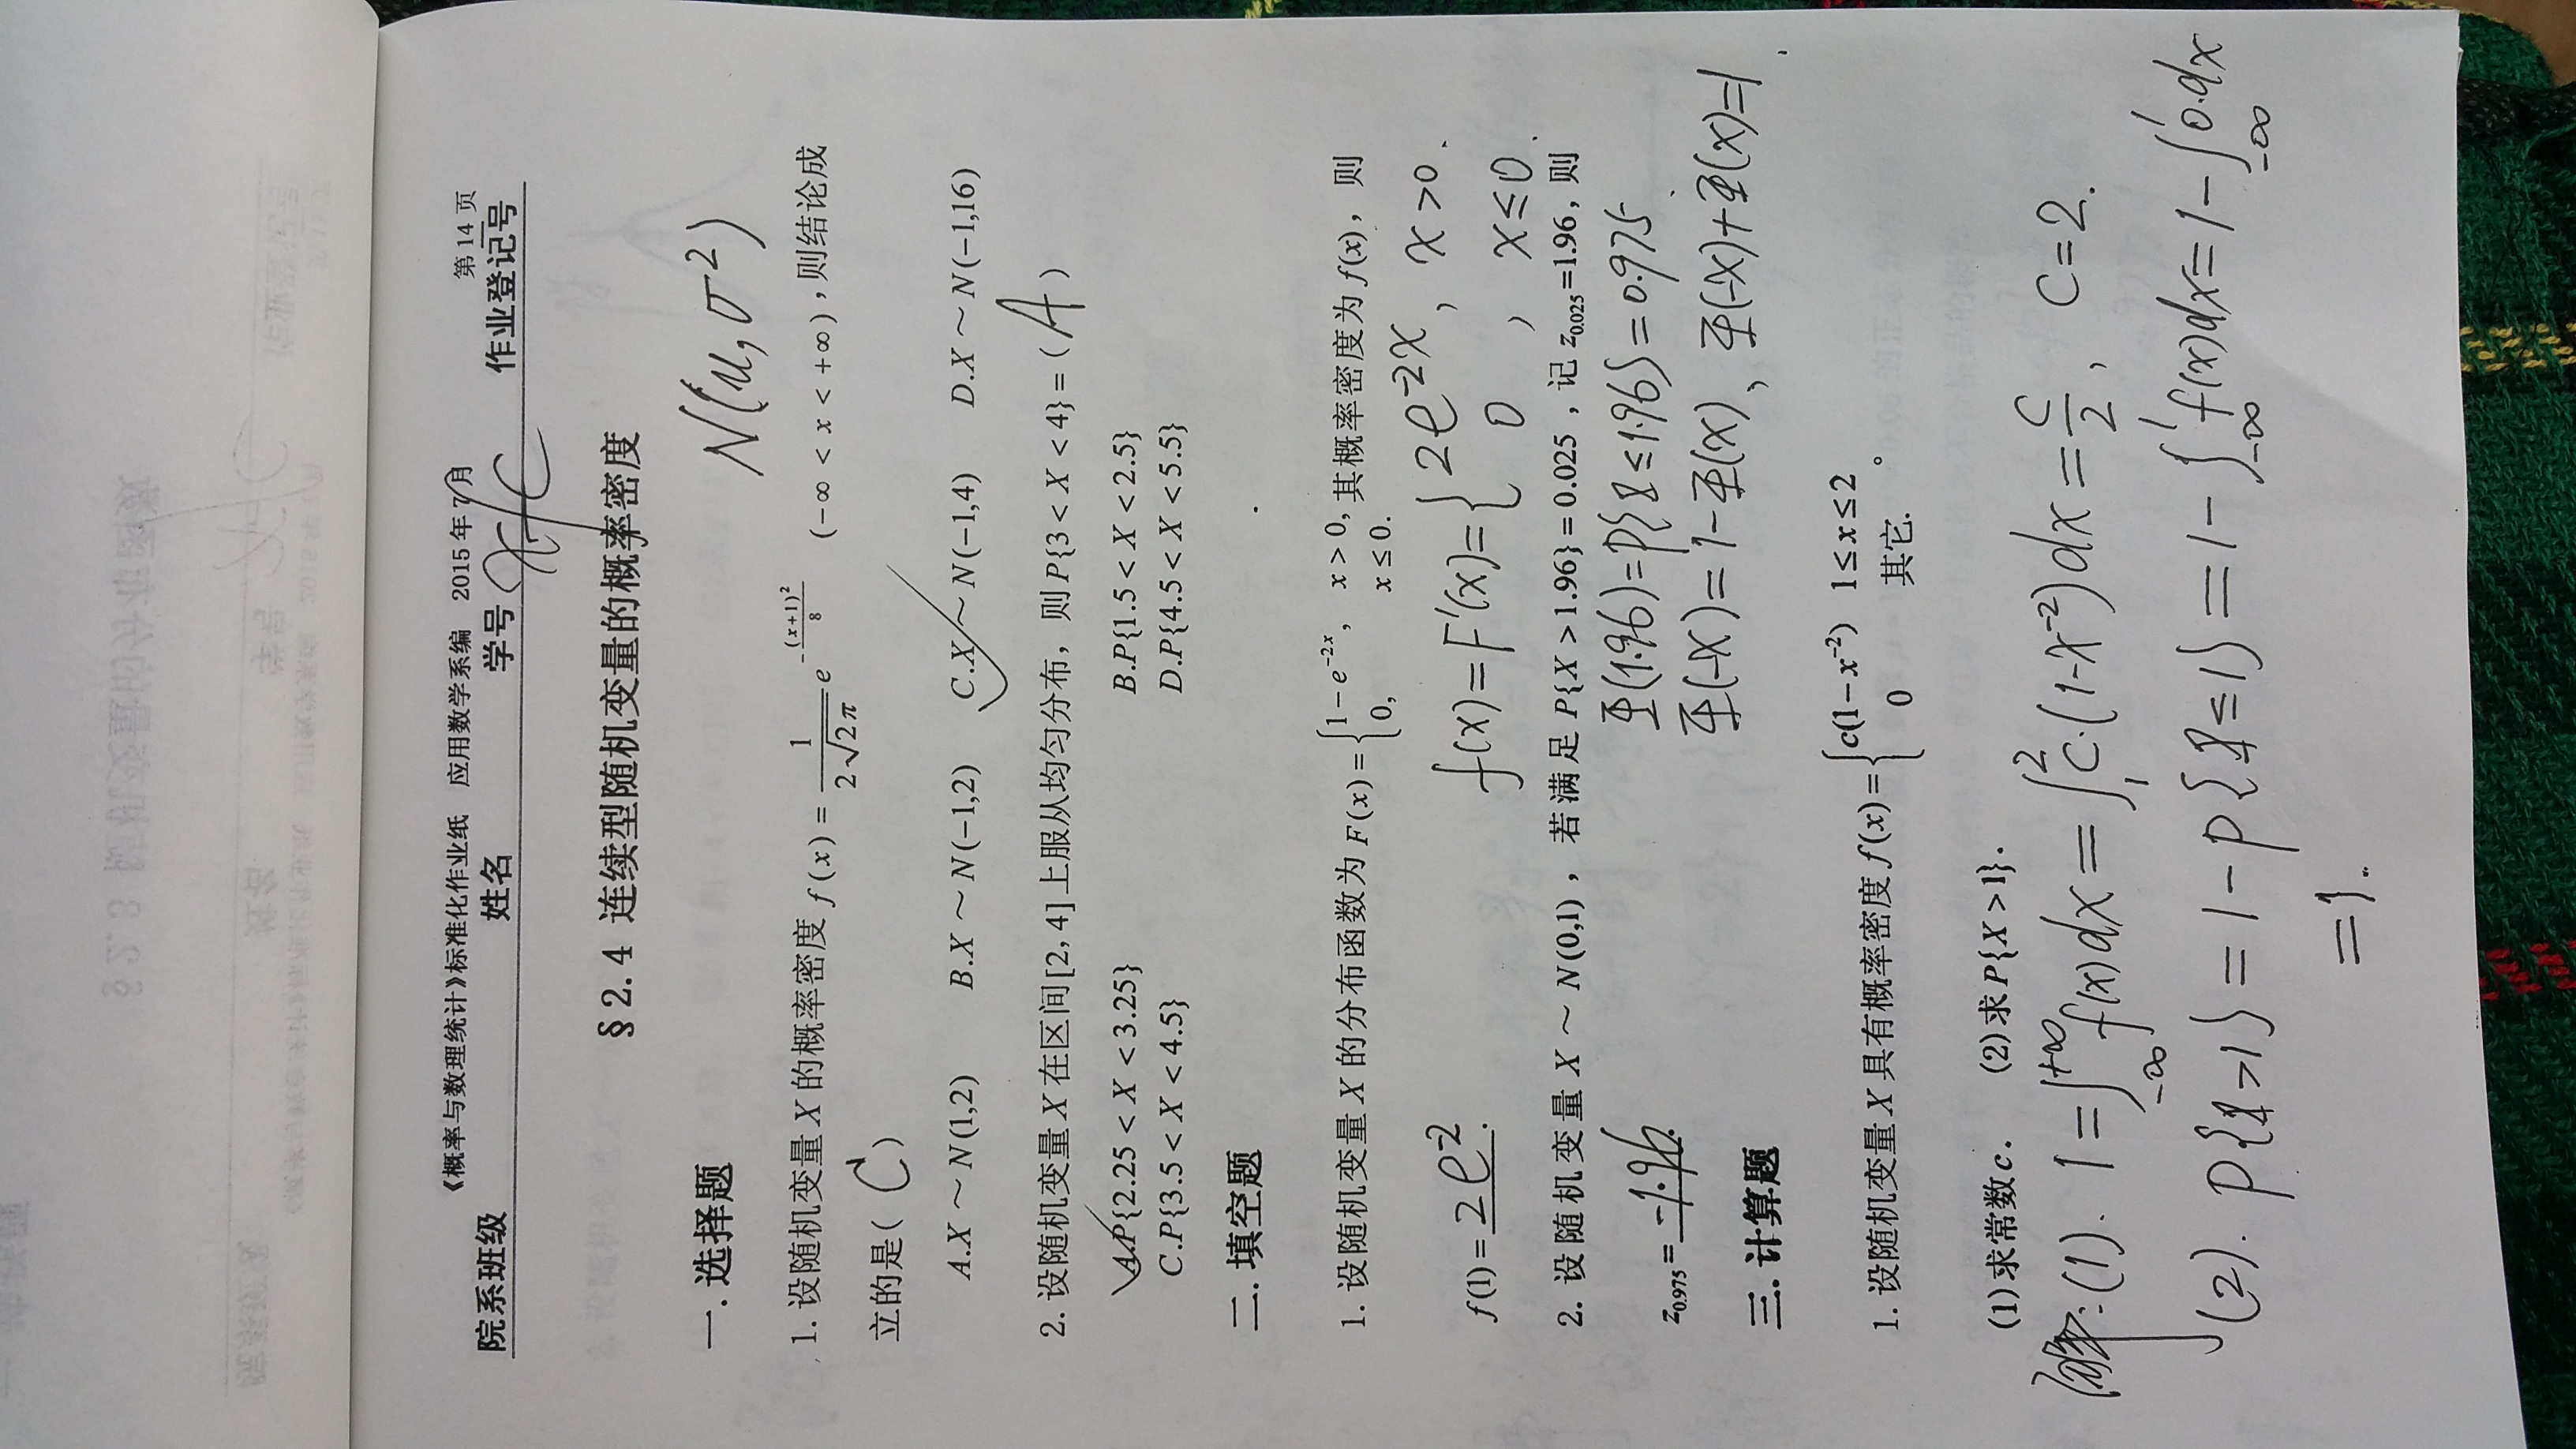 《概率与数理统计》标准化作业纸 应用数学系编 2015 年 7 月 第 14 页
院系班级 姓名 学号 作业登记号
§2.4 连续型随机变量的概率密度
一. 选择题
N(u, σ²)
1. 设随机变量 X 的概率密度 f(x) = \frac{1}{2\sqrt{2π}} e^{-\frac{(x+1)^2}{8}} (-∞ < x < +∞) ，则结论成
立的是( C )
A.X ～ N(1,2) B.X ～ N(−1,2) C.X ～ N(−1,4) D.X ～ N(−1,16)
2. 设随机变量 X 在区间[2, 4]上服从均匀分布，则 P{3 < X < 4} = ( A )
A.P{2.25 < X < 3.25} B.P{1.5 < X < 2.5}
C.P{3.5 < X < 4.5} D.P{4.5 < X < 5.5}
二. 填空题
1. 设随机变量 X 的分布函数为 F(x) = { 1 − e^{−2x}, x > 0, 0, x ≤ 0. 其概率密度为 f(x)，则
f(1) = 2e^{-2}. f(x) = F'(x) = { 2e^{-2x}, x>0. 0, x≤0.
2. 设随机变量 X ～ N(0,1)，若满足 P{X > 1.96} = 0.025，记 z_{0.025}=1.96，则
Φ(1.96)=P{X≤1.96}=0.975.
z_{0.975} = -1.96.
Φ(-x)=1-Φ(x), Φ(-x)+Φ(x)=1.
三. 计算题
1. 设随机变量 X 具有概率密度 f(x) = { c(1−x^{−2}) 1≤x≤2 0 其它. 。
(1)求常数c. (2)求 P{X >1}.
解:(1). 1=∫_{-∞}^{+∞} f(x)dx = ∫_1^2 c·(1-x^{-2})dx = \frac{c}{2}, C=2.
(2). P{X>1} = 1-P{X≤1} = 1-∫_{-∞}^1 f(x)dx = 1-∫_{-∞}^1 0·dx
=1.